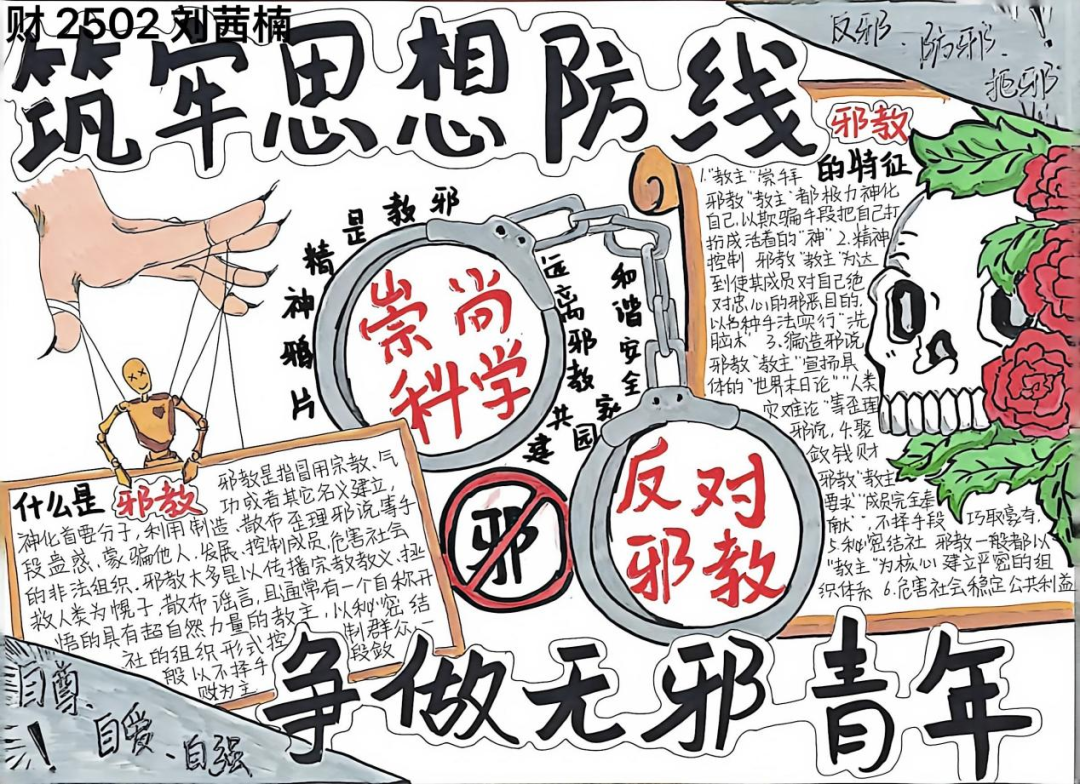 财 2502 刘茜楠
筑牢思想防线
反邪、防邪、拒邪!
邪教是精神鸦片
远离邪教
共建和谐安全家园
崇尚
科学
反对
邪教
邪
邪教
的特征
1."教主"崇拜
邪教"教主"都极力神化
自己,以欺骗手段把自己打
扮成活着的"神" 2.精神
控制 邪教"教主"为达
到使其成员对自己绝
对忠心的邪恶目的,
以各种手法实行"洗
脑术" 3.编造邪说
邪教"教主"宣扬具
体的"世界末日论""人类
灾难论"等歪理
邪说, 4.聚
敛钱财
邪教"教主"
要求"成员完全奉
献",不择手段 巧取豪夺,
5.秘密结社 邪教一般都以
"教主"为核心建立严密的组
织体系 6.危害社会稳定公共利益
什么是 邪教
邪教是指冒用宗教、气
功或者其它名义建立,
神化首要分子,利用制造、散布歪理邪说等手
段蛊惑、蒙骗他人,发展、控制成员,危害社会
的非法组织.邪教大多是以传播宗教教义、拯
救人类为幌子,散布谣言,且通常有一个自称开
悟的具有超自然力量的教主,以秘密结
社的组织形式控制群众,一
般以不择手段敛
财为主
自尊、自爱、自强!
争做无邪青年